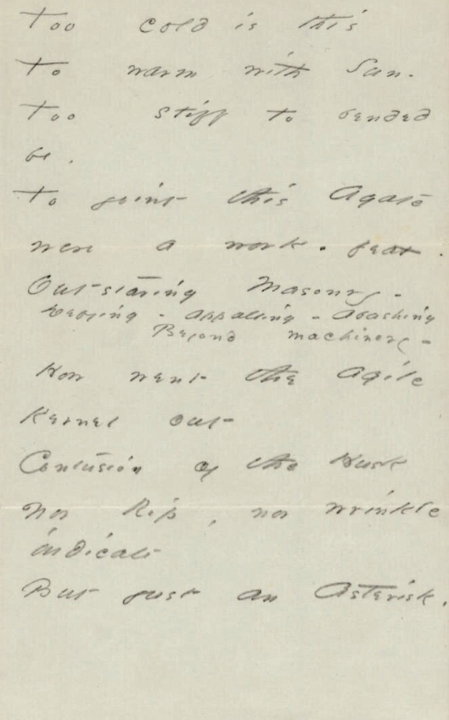 Too cold is this
To warm with Sun.
Too stiff to bended
be.
To joint this Agate
were a work. feat.
Outstaring Masonry -
Defying - appalling - abashing
Beyond machinery -
How went the Agile
Kernel out
Contusion of the Husk
Nor Rip, nor wrinkle
indicate
But just an Asterisk.